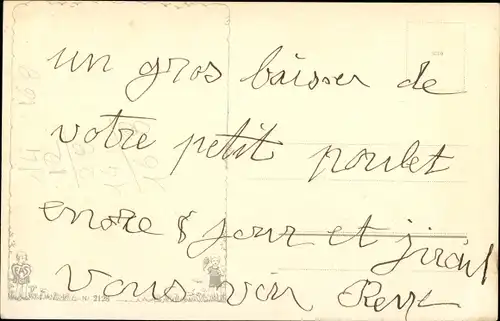 un gros baisser de
votre petit poulet
encore 8 jour et j'irai
vous voir